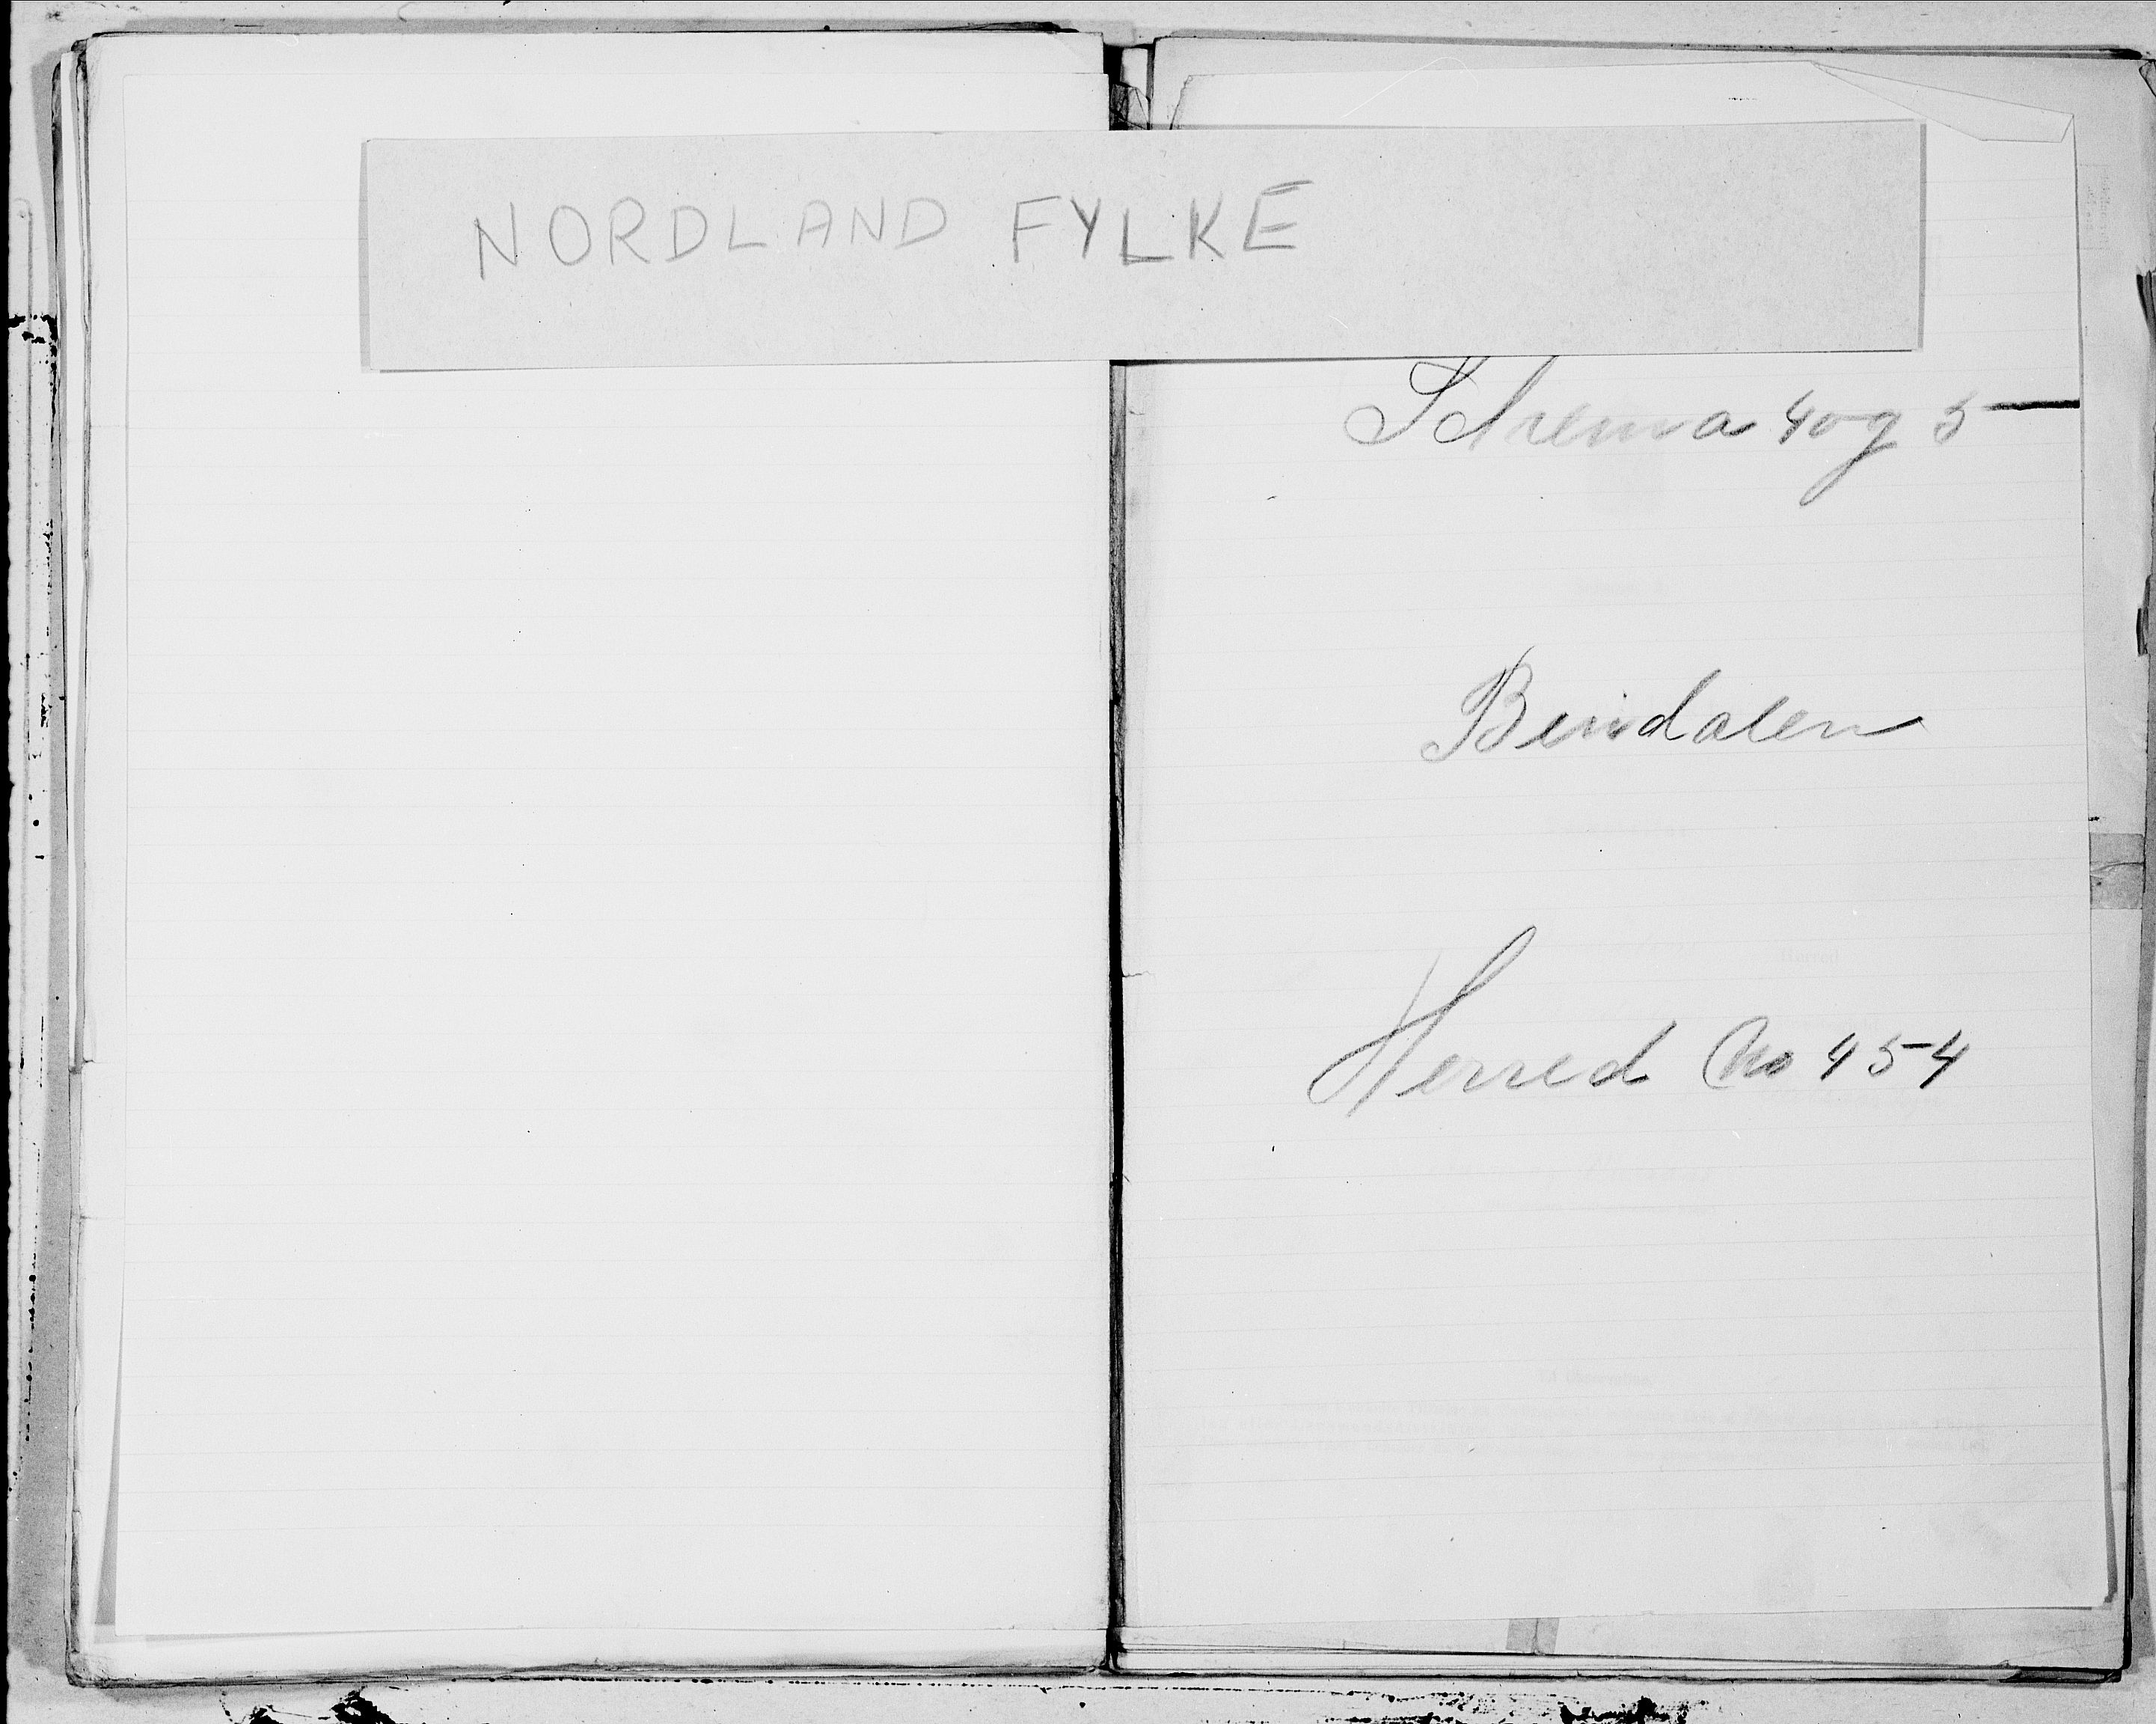 NORDLAND FYLKE
Schema 4 og 5
Bindalen
Herred No 454